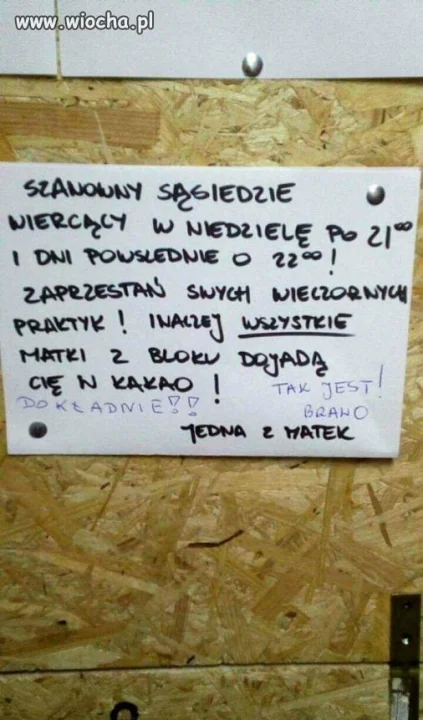 www.wiocha.pl
SZANOWNY SĄSIEDZIE
WIERCĄCY W NIEDZIELĘ PO 21⁰⁰
I DNI POWSZEDNIE O 22⁰⁰!
ZAPRZESTAŃ SWYCH WIECZORNYCH
PRAKTYK! INACZEJ WSZYSTKIE
MATKI Z BLOKU DOJADĄ
CIĘ W KAKAO!
TAK JEST!
DOKŁADNIE!!
BRAWO
JEDNA Z MATEK